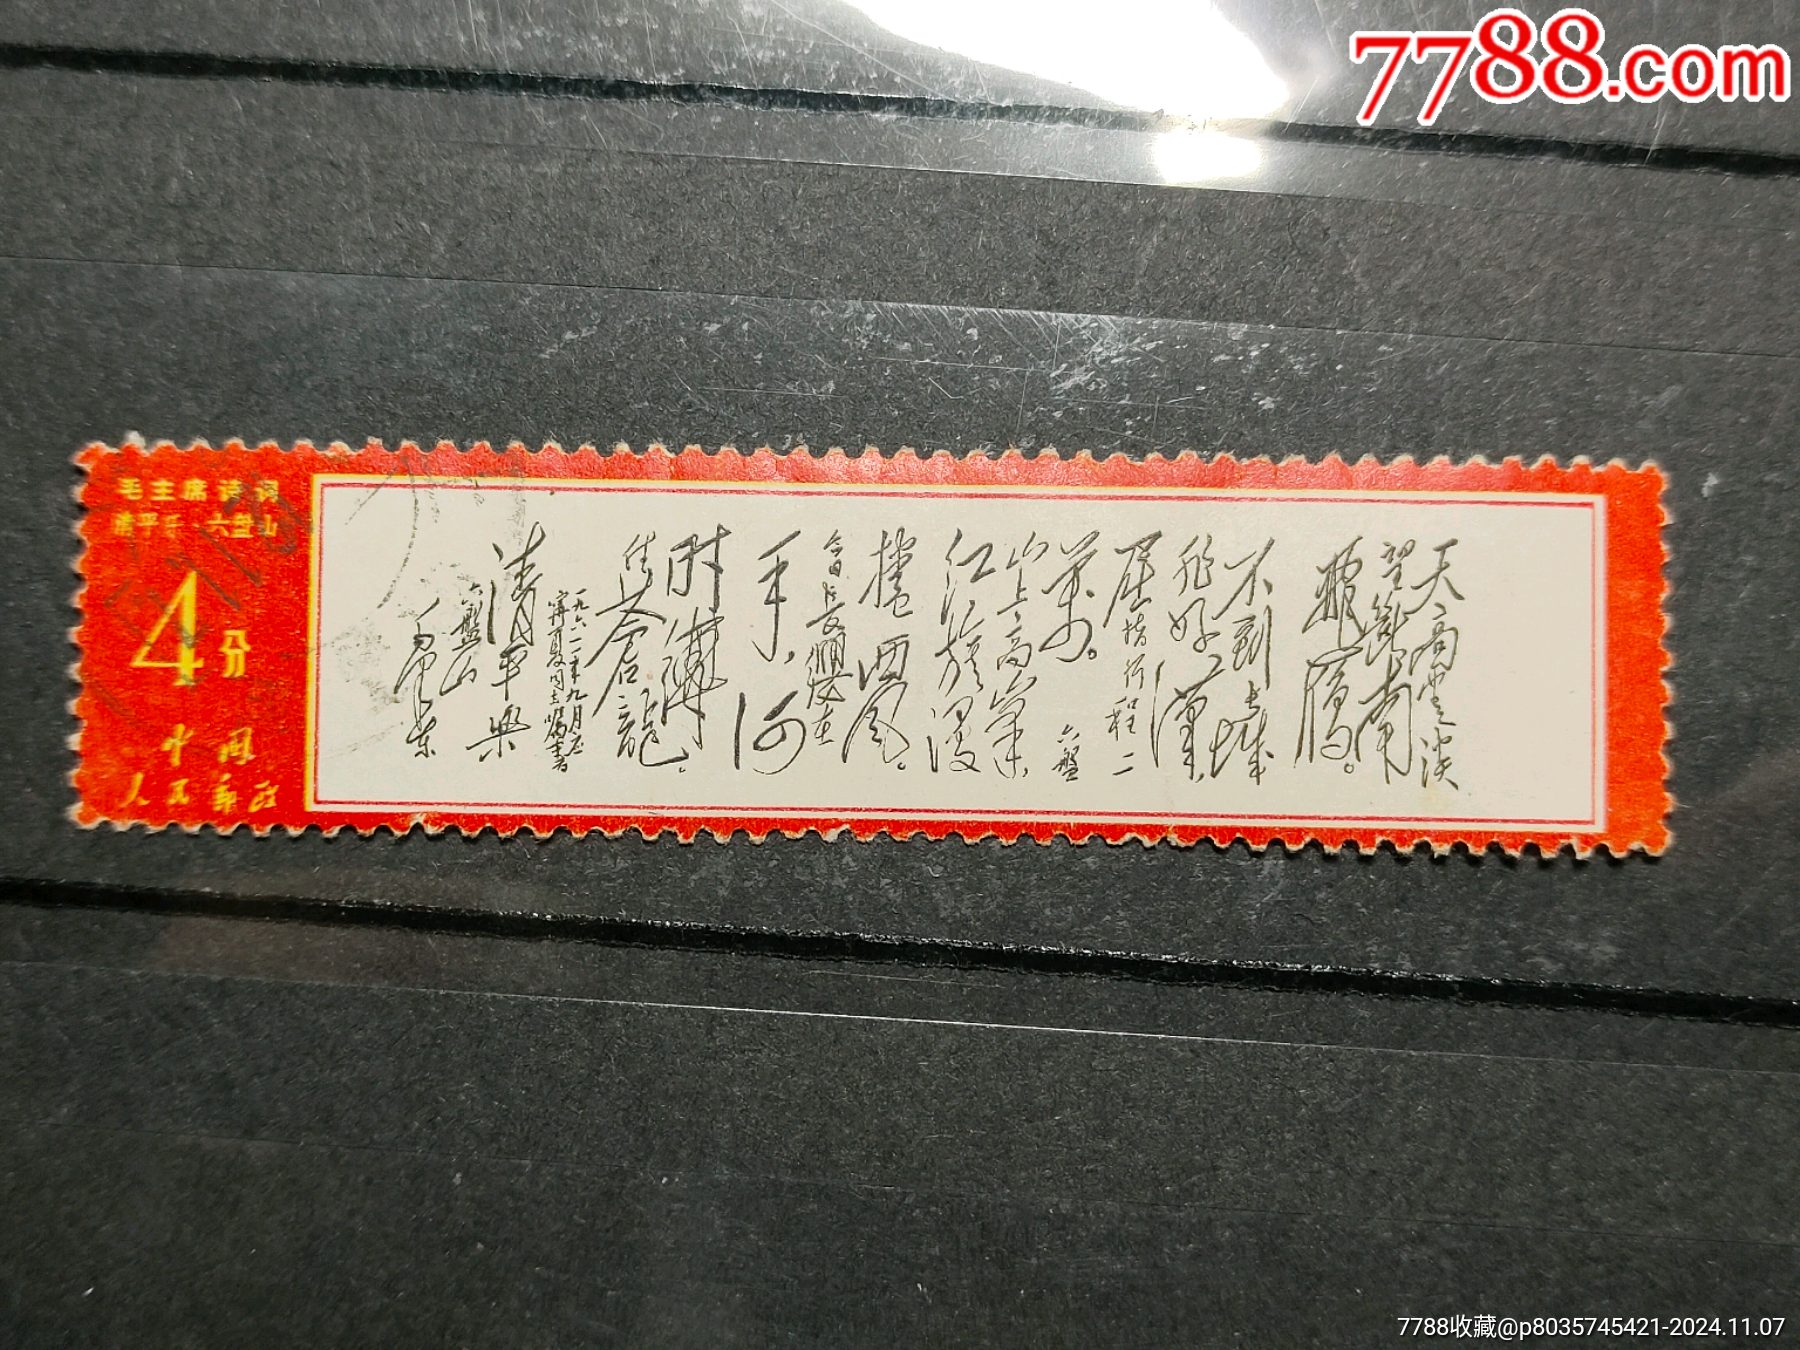 7788.com
毛主席诗词
清平乐·六盘山
4分
中国
人民邮政
天高云淡
望断南
飞雁。
不到长城
非好汉，
屈指行程二
万。
六盘
山上高峰，
红旗漫
卷西风。
今日长缨在
手，
何
时缚
住苍龙。
一九六一年九月应
宁夏同志嘱书
清平乐
六盘山
毛泽东
7788收藏@p8035745421-2024.11.07